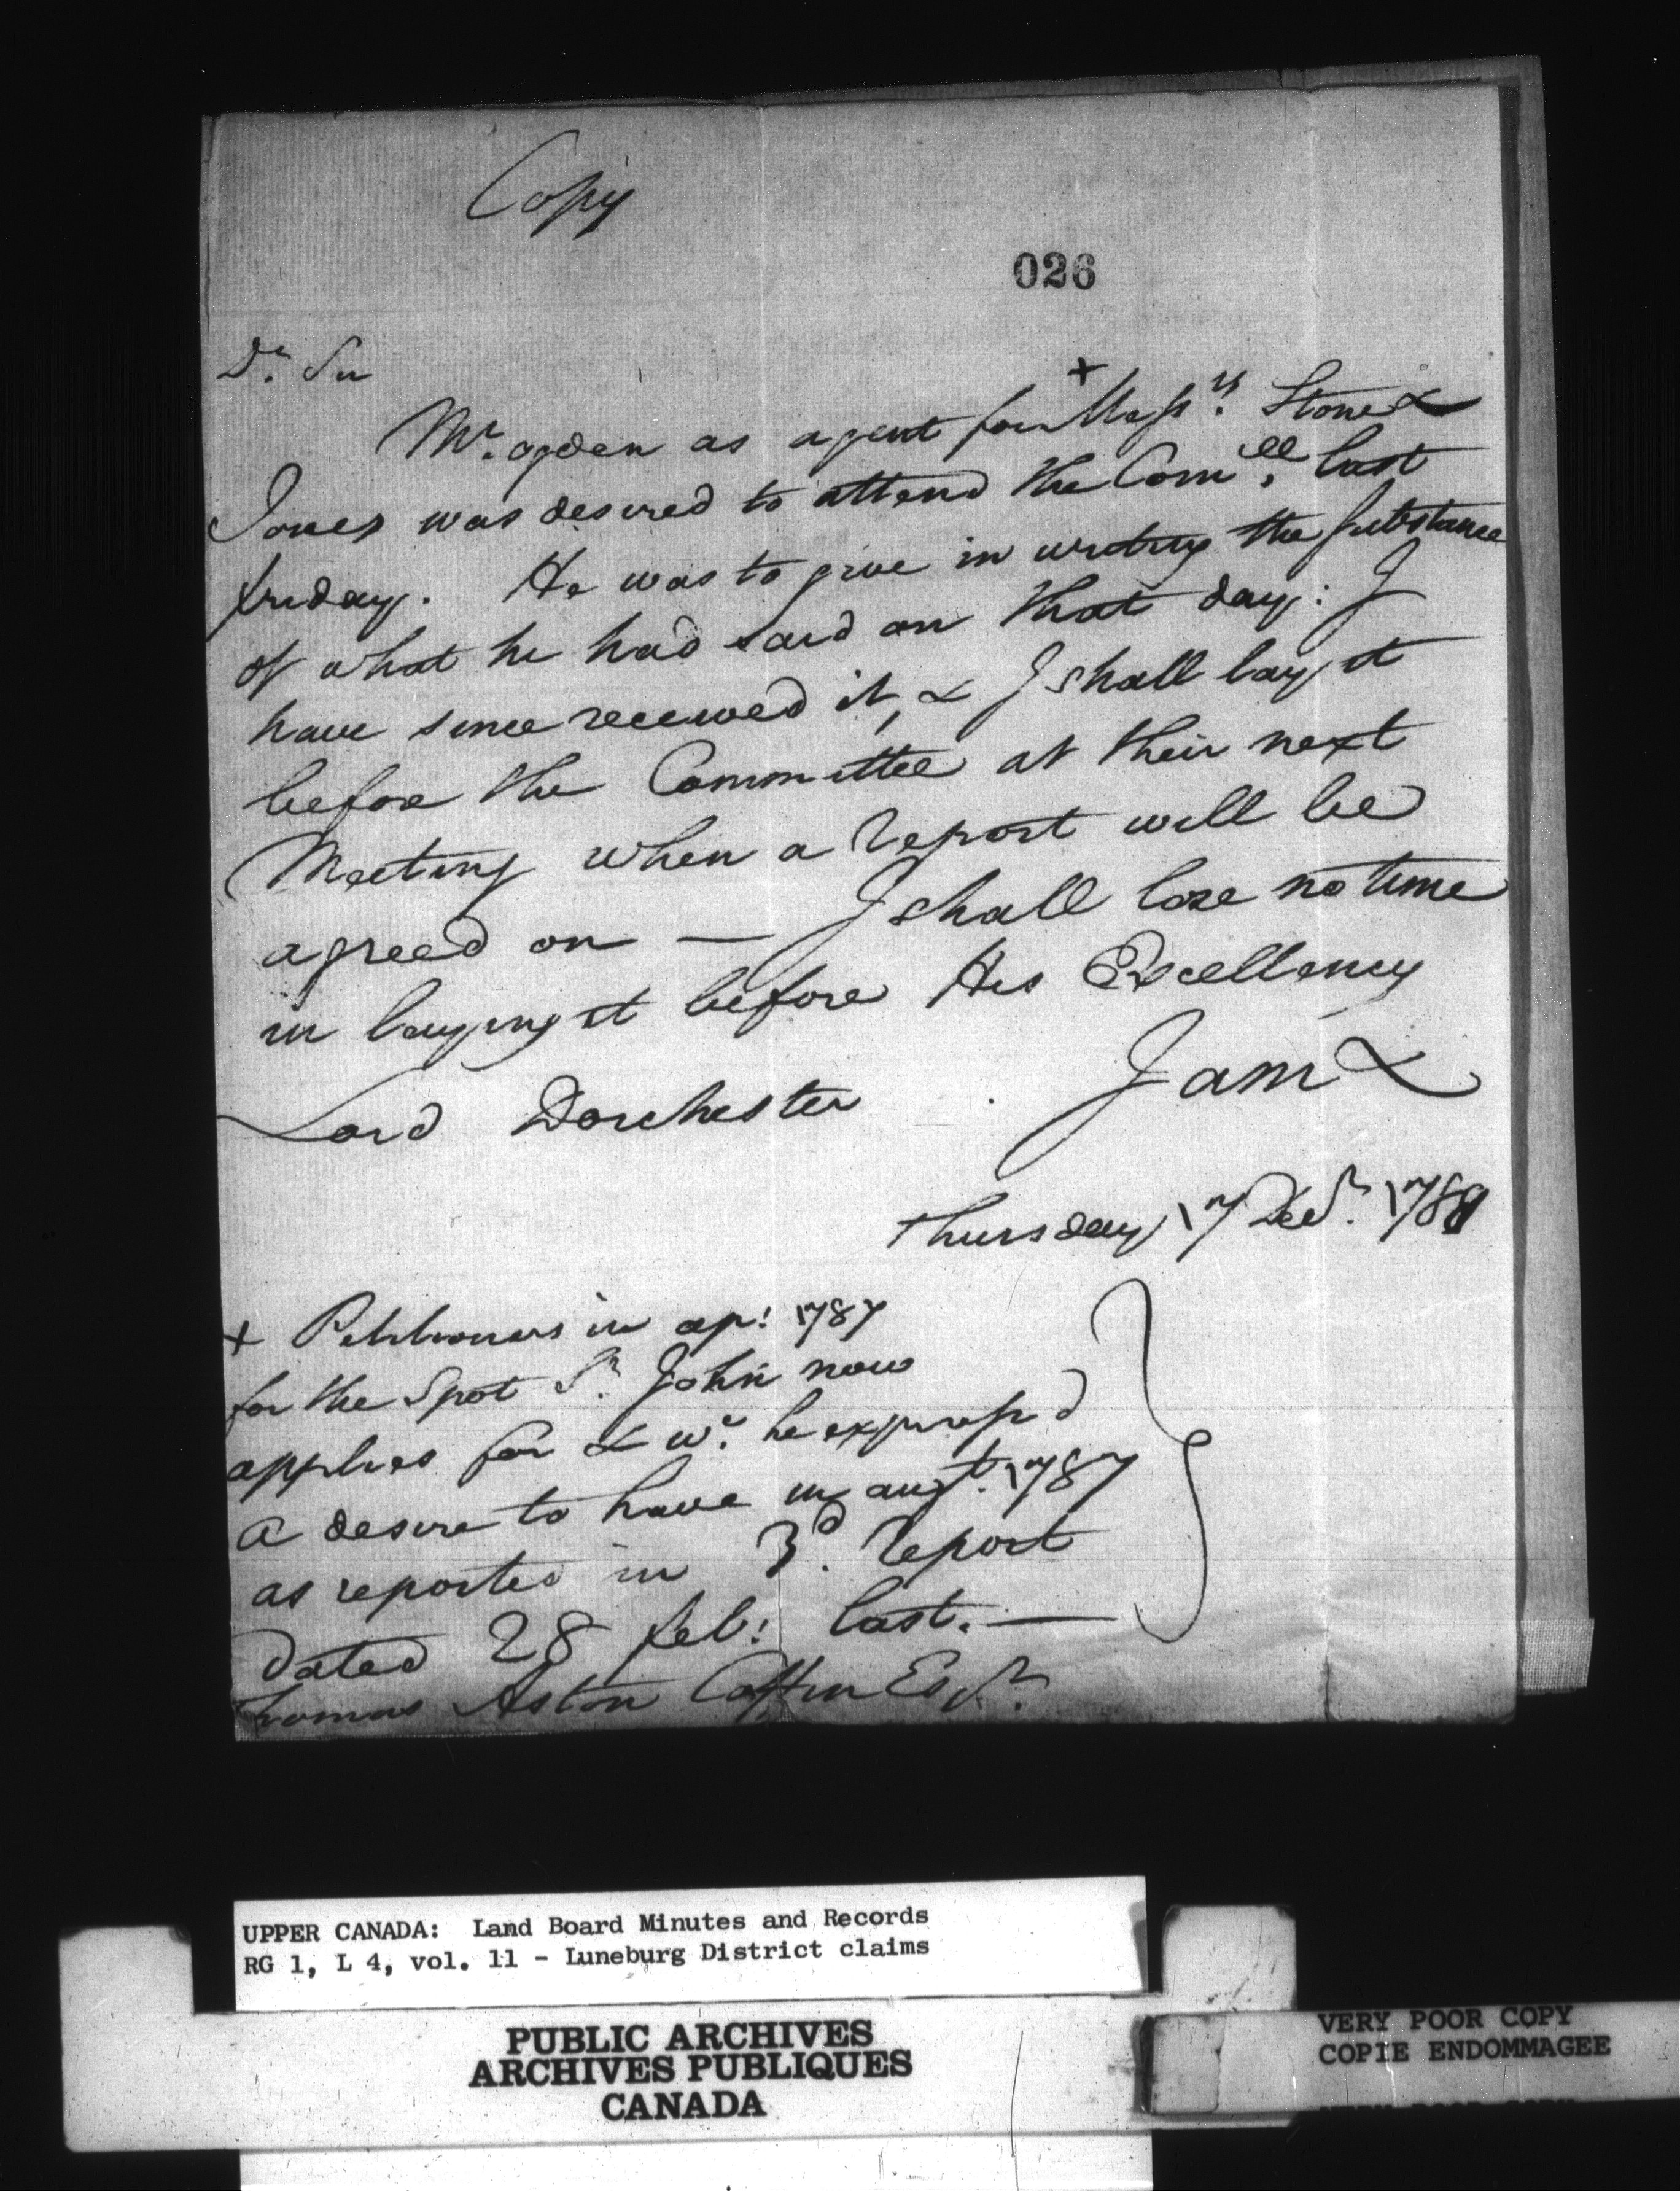 Copy
026
Dr. Sir
Mr. Ogden as agent for + Messrs. Stone &
Jones was desired to attend the Comee. last
friday. He was to give in writing the Substance
of what he had said on that day: I
have since received it, & I shall lay it
before the Committee at their next
Meeting when a report will be
agreed on — I shall lose no time
in laying it before His Excellency
Lord Dorchester. I am &
Thursday 17 Decr. 1789
+ Petitioners in apl: 1787
for the Spot Sr. John now
applies for & wh. he express'd
a desire to have in augt. 1787
as reported in 3d. report
dated 28 feb: last. —
Thomas Aston Coffin Esqr.
UPPER CANADA: Land Board Minutes and Records
RG 1, L 4, vol. 11 - Luneburg District claims
PUBLIC ARCHIVES
ARCHIVES PUBLIQUES
CANADA
VERY POOR COPY
COPIE ENDOMMAGEE